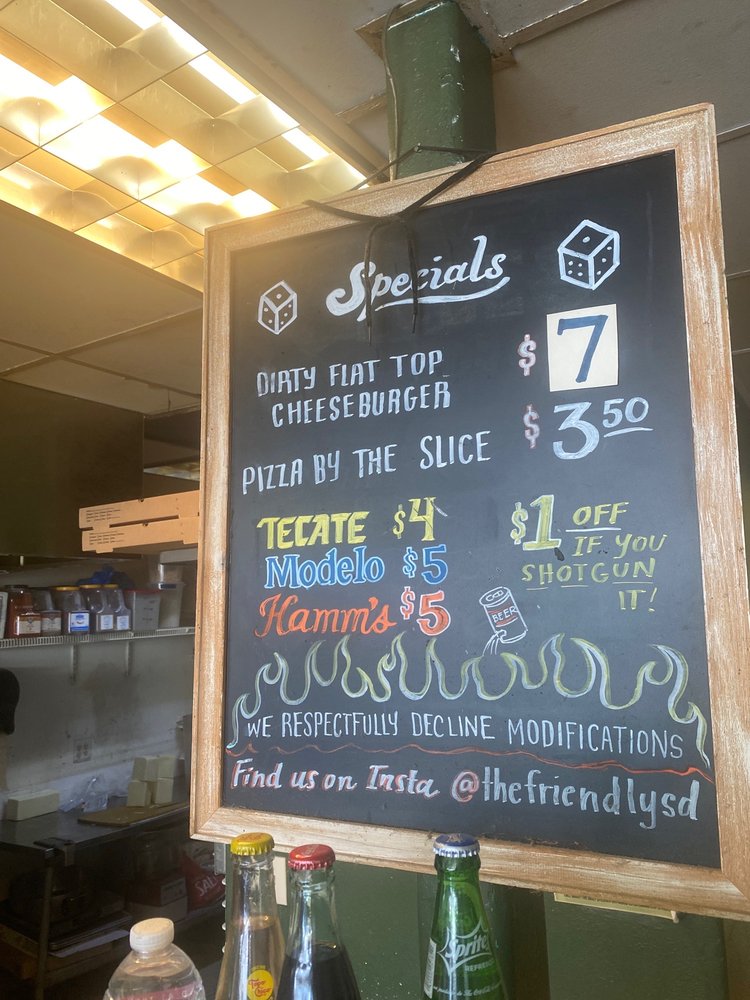 Specials
DIRTY FLAT TOP
CHEESEBURGER
$7
PIZZA BY THE SLICE
$3.50
TECATE $4
Modelo $5
Hamm's $5
$1 OFF
IF YOU
SHOTGUN
IT!
BEER
WE RESPECTFULLY DECLINE MODIFICATIONS
Find us on Insta @thefriendlysd
Topo
Chico
Sprite